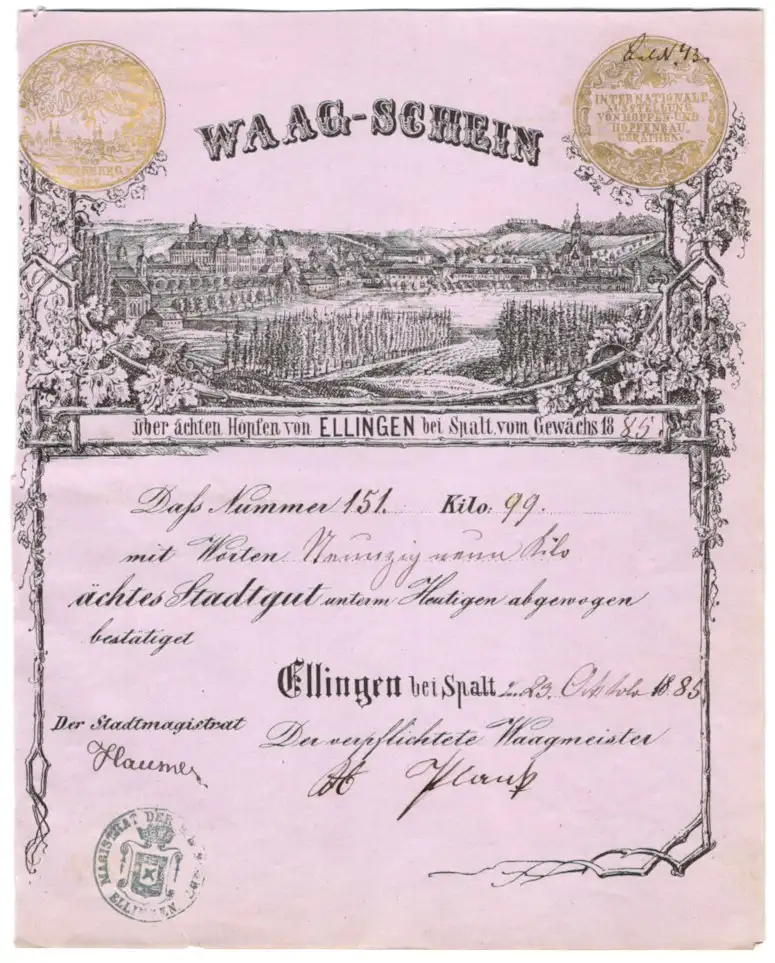 N. 43.
WAAG-SCHEIN
NÜRNBERG
INTERNATIONALE
AUSSTELLUNG
VON HOPFEN UND
HOPFENBAU
GERÄTHEN.
über ächten Hopfen von ELLINGEN bei Spalt, vom Gewächs 1885.
Daſs Nummer 151. Kilo: 99.
mit Worten Neunzig neun Kilo
ächtes Stadtgut unterm Heutigen abgewogen
bestätiget
Ellingen bei Spalt 23. Oktober 1885
Der Stadtmagistrat
Der verpflichtete Waagmeister
Plank
MAGISTRAT DER
ELLINGEN